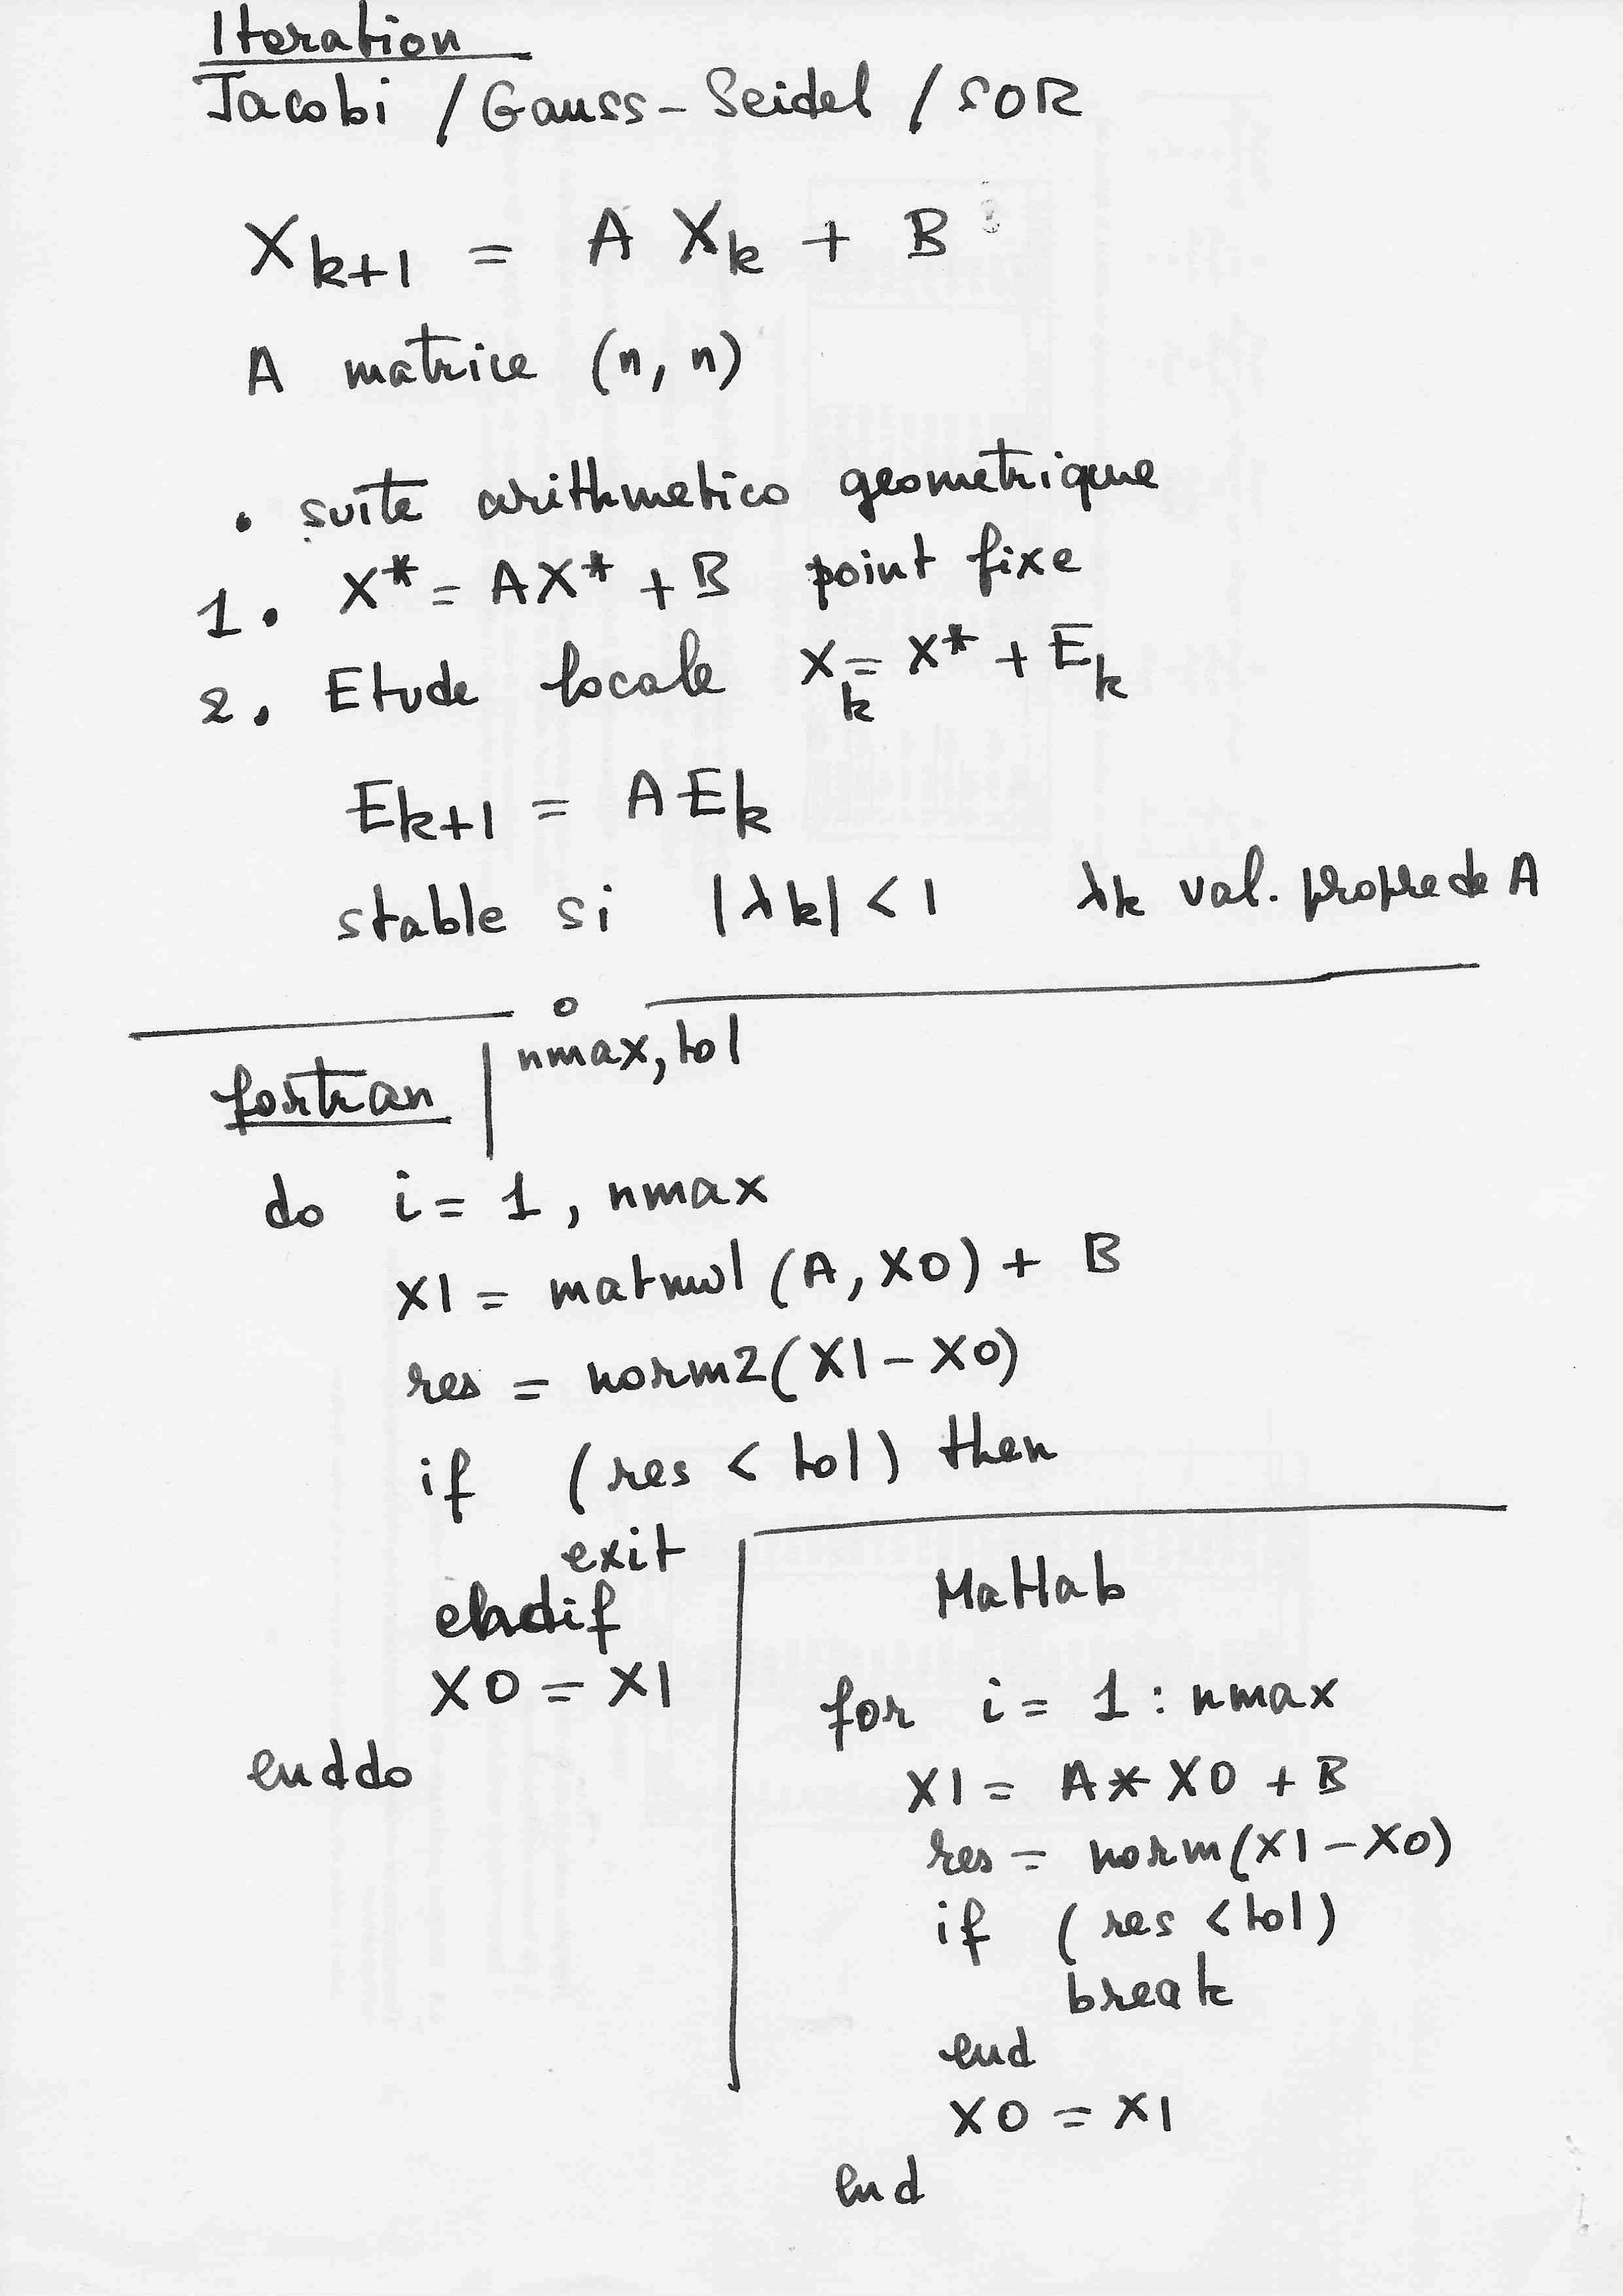 Iteration
Jacobi / Gauss-Seidel / SOR
X_{k+1} = A X_k + B
A matrice (n, n)
• suite arithmetico geometrique
1. X* = AX* + B point fixe
2. Etude locale X_k = X* + E_k
E_{k+1} = A E_k
stable si |λk| < 1 λk val. propre de A
fortran | nmax, tol
do i = 1, nmax
X1 = matmul (A, X0) + B
res = norm2(X1 - X0)
if (res < tol) then
exit
endif
X0 = X1
enddo
Matlab
for i = 1 : nmax
X1 = A * X0 + B
res = norm(X1 - X0)
if (res < tol)
break
end
X0 = X1
end